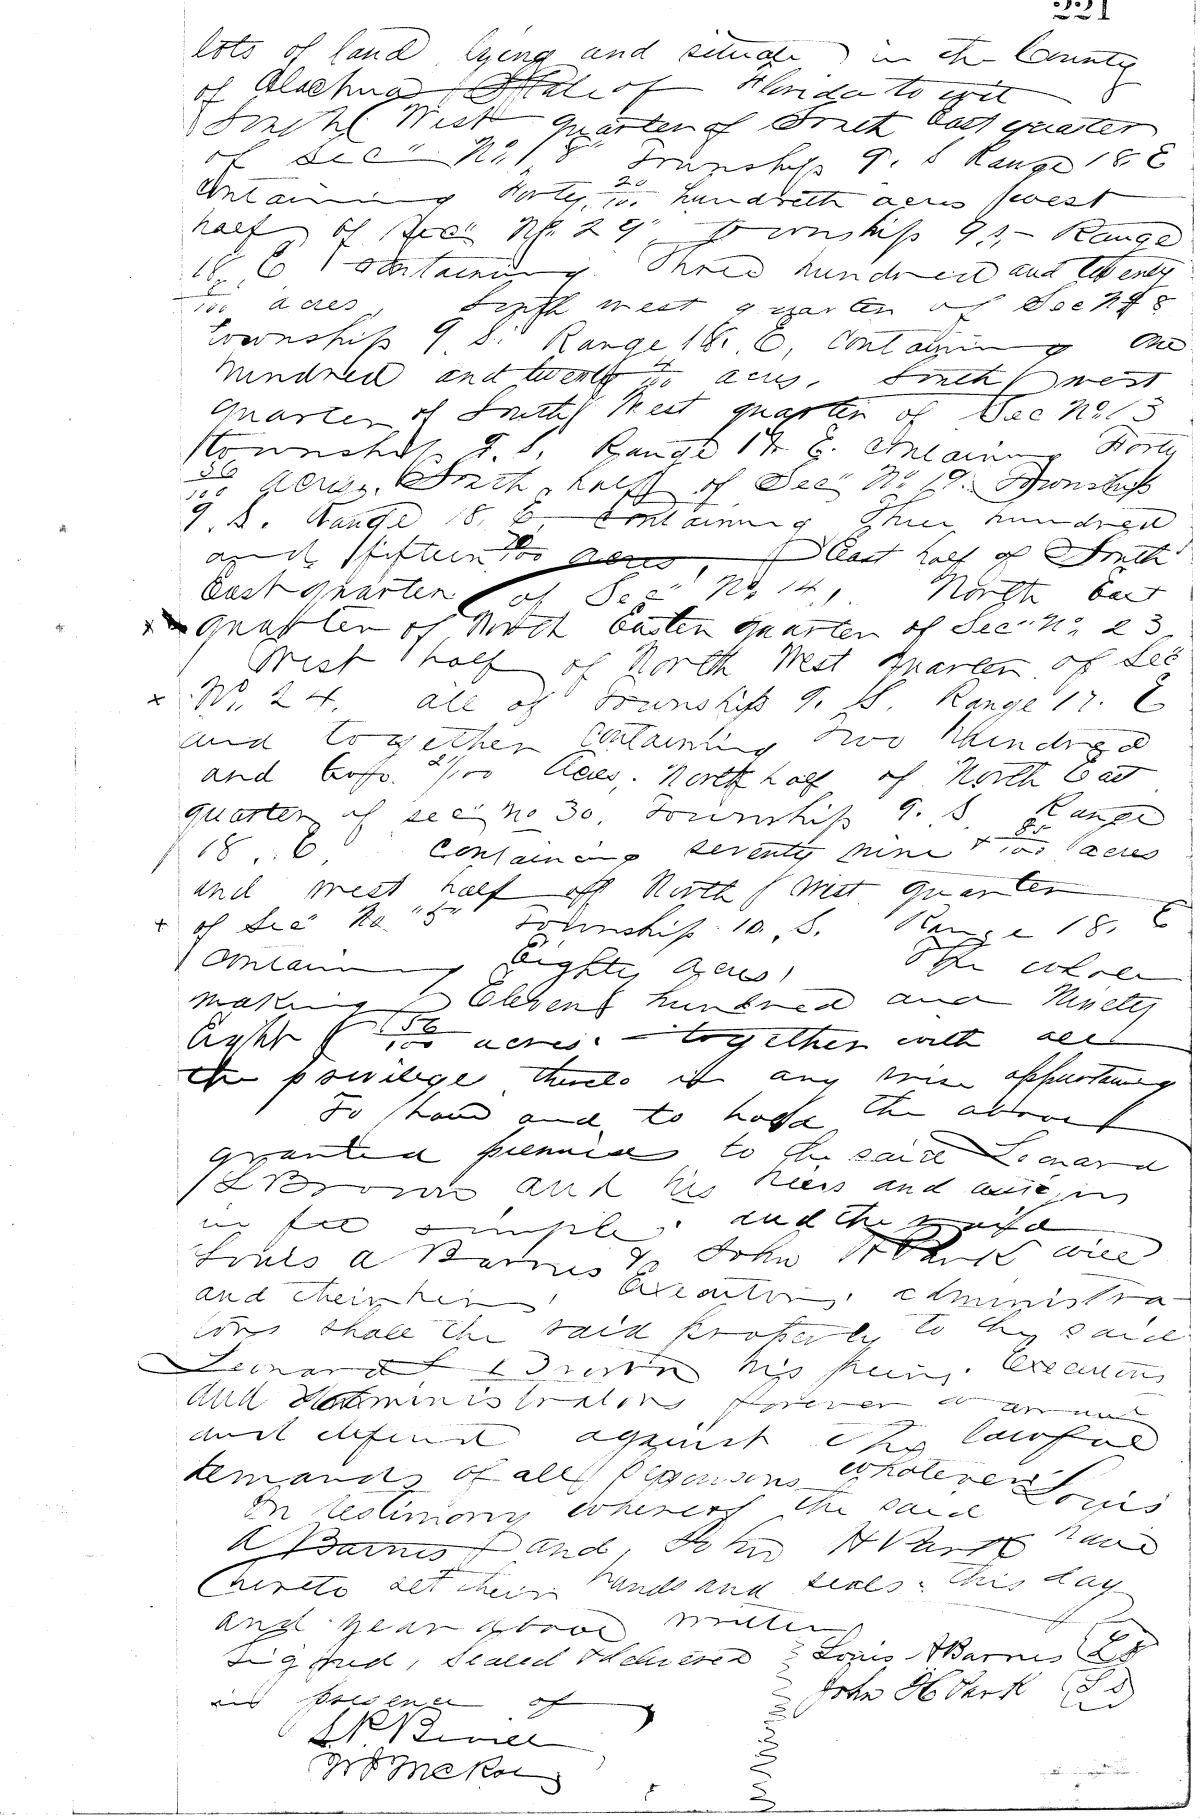 221
lots of land lying and situate in the County
of Alachua State of Florida to wit
South West quarter of South East quater
of Sec" No. "18" Township 9. S Range 18. E
containing Forty 20/100 hundreth acres west
half of Sec" No. 29, township 9 S, Range
18. E containing Three hundred and twenty
/100 acres, South west quarter of Sec No
township 9 S. Range 18. E, containing one
hundred and twenty 4/100 acres. South west
quarter of South West quarter of Sec No. 13
township 9. S. Range 17. E. containing Forty
36/100 acres. South half of Sec" No 19. Township
9. S. Range 18. E. containing Three hundred
and fifteen 70/100 acres, East half of South
East quarter of Sec" No. 14, North East
x quarter of North Easter quarter of Sec" No. 23
West half of North West quarter of Sec
x No. 24. all of Township 9. S. Range 17. E
and together containing Two Hundred
and /100 Acres. North half of North East
quarter of sec" no 30. Township 9. S. Range
18. E containing seventy nine + 85/100 acres
and west half of North West quarter
+ of Sec" No "5" Township 10. S. Range 18. E
containing Eighty acres, The whole
making Eleven hundred and Ninety
Eight 56/100 acres. together with all
the privilege thereto in any wise appurtaining
To have and to hold the above
granted premises to the said Leonard
L Brown and his heirs and assigns
in fee simple. and the said
Louis A Barnes & John H Park will
and their heirs, Executors, administra-
tors shall the said property to the said
Leonard L Brown his heirs. Executors
and Administrators forever warrant
and defend against the lawful
demands of all persons whatever.
In testimony whereof the said Louis
A Barnes and, John H Park have
hereto set their hands and seals. this day
and year above written
Signed, Sealed & delivered Louis A Barnes (LS)
in presence of John H Park (LS)
S.R. Bevill
McKo